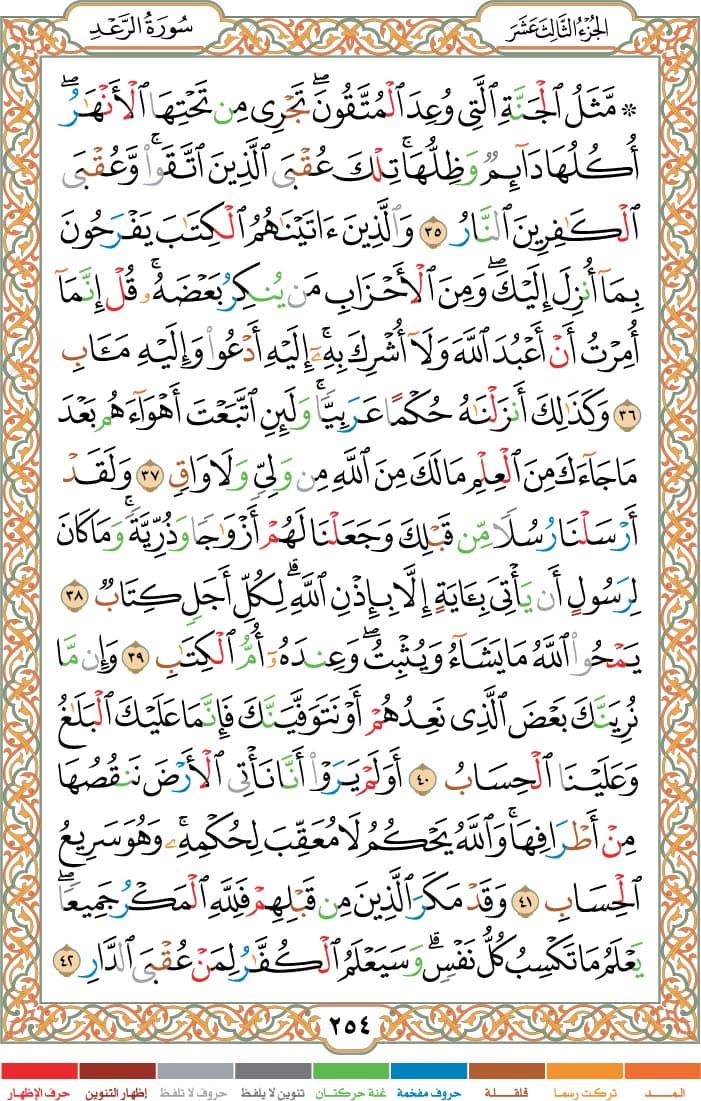 الجزء الثالث عشر
سورة الرعد
۞ مَّثَلُ ٱلْجَنَّةِ ٱلَّتِى وُعِدَ ٱلْمُتَّقُونَ ۖ تَجْرِى مِن تَحْتِهَا ٱلْأَنْهَـٰرُ ۖ
أُكُلُهَا دَآئِمٌ وَظِلُّهَا ۚ تِلْكَ عُقْبَى ٱلَّذِينَ ٱتَّقَوا۟ ۖ وَّعُقْبَى
ٱلْكَـٰفِرِينَ ٱلنَّارُ ٣٥ وَٱلَّذِينَ ءَاتَيْنَـٰهُمُ ٱلْكِتَـٰبَ يَفْرَحُونَ
بِمَآ أُنزِلَ إِلَيْكَ ۖ وَمِنَ ٱلْأَحْزَابِ مَن يُنكِرُ بَعْضَهُۥ ۚ قُلْ إِنَّمَآ
أُمِرْتُ أَنْ أَعْبُدَ ٱللَّهَ وَلَآ أُشْرِكَ بِهِۦٓ ۚ إِلَيْهِ أَدْعُوا۟ وَإِلَيْهِ مَـَٔابِ
٣٦ وَكَذَٰلِكَ أَنزَلْنَـٰهُ حُكْمًا عَرَبِيًّا ۚ وَلَئِنِ ٱتَّبَعْتَ أَهْوَآءَهُم بَعْدَ
مَا جَآءَكَ مِنَ ٱلْعِلْمِ مَا لَكَ مِنَ ٱللَّهِ مِن وَلِىٍّ وَلَا وَاقٍ ٣٧ وَلَقَدْ
أَرْسَلْنَا رُسُلًا مِّن قَبْلِكَ وَجَعَلْنَا لَهُمْ أَزْوَٰجًا وَذُرِّيَّةً ۚ وَمَا كَانَ
لِرَسُولٍ أَن يَأْتِىَ بِـَٔايَةٍ إِلَّا بِإِذْنِ ٱللَّهِ ۗ لِكُلِّ أَجَلٍ كِتَابٌ ٣٨
يَمْحُوا۟ ٱللَّهُ مَا يَشَآءُ وَيُثْبِتُ ۖ وَعِندَهُۥٓ أُمُّ ٱلْكِتَـٰبِ ٣٩ وَإِن مَّا
نُرِيَنَّكَ بَعْضَ ٱلَّذِى نَعِدُهُمْ أَوْ نَتَوَفَّيَنَّكَ فَإِنَّمَا عَلَيْكَ ٱلْبَلَـٰغُ
وَعَلَيْنَا ٱلْحِسَابُ ٤٠ أَوَلَمْ يَرَوْا۟ أَنَّا نَأْتِى ٱلْأَرْضَ نَنقُصُهَا
مِنْ أَطْرَافِهَا ۚ وَٱللَّهُ يَحْكُمُ لَا مُعَقِّبَ لِحُكْمِهِۦ ۚ وَهُوَ سَرِيعُ
ٱلْحِسَابِ ٤١ وَقَدْ مَكَرَ ٱلَّذِينَ مِن قَبْلِهِمْ فَلِلَّهِ ٱلْمَكْرُ جَمِيعًا ۖ
يَعْلَمُ مَا تَكْسِبُ كُلُّ نَفْسٍ ۗ وَسَيَعْلَمُ ٱلْكُفَّـٰرُ لِمَنْ عُقْبَى ٱلدَّارِ ٤٢
٢٥٤
المــــد تركت رسما قلقــلة حروف مفخمة غنة حركتـان تنوين لا يلفظ حروف لا تلفظ إظهار التنوين حرف الإظهار